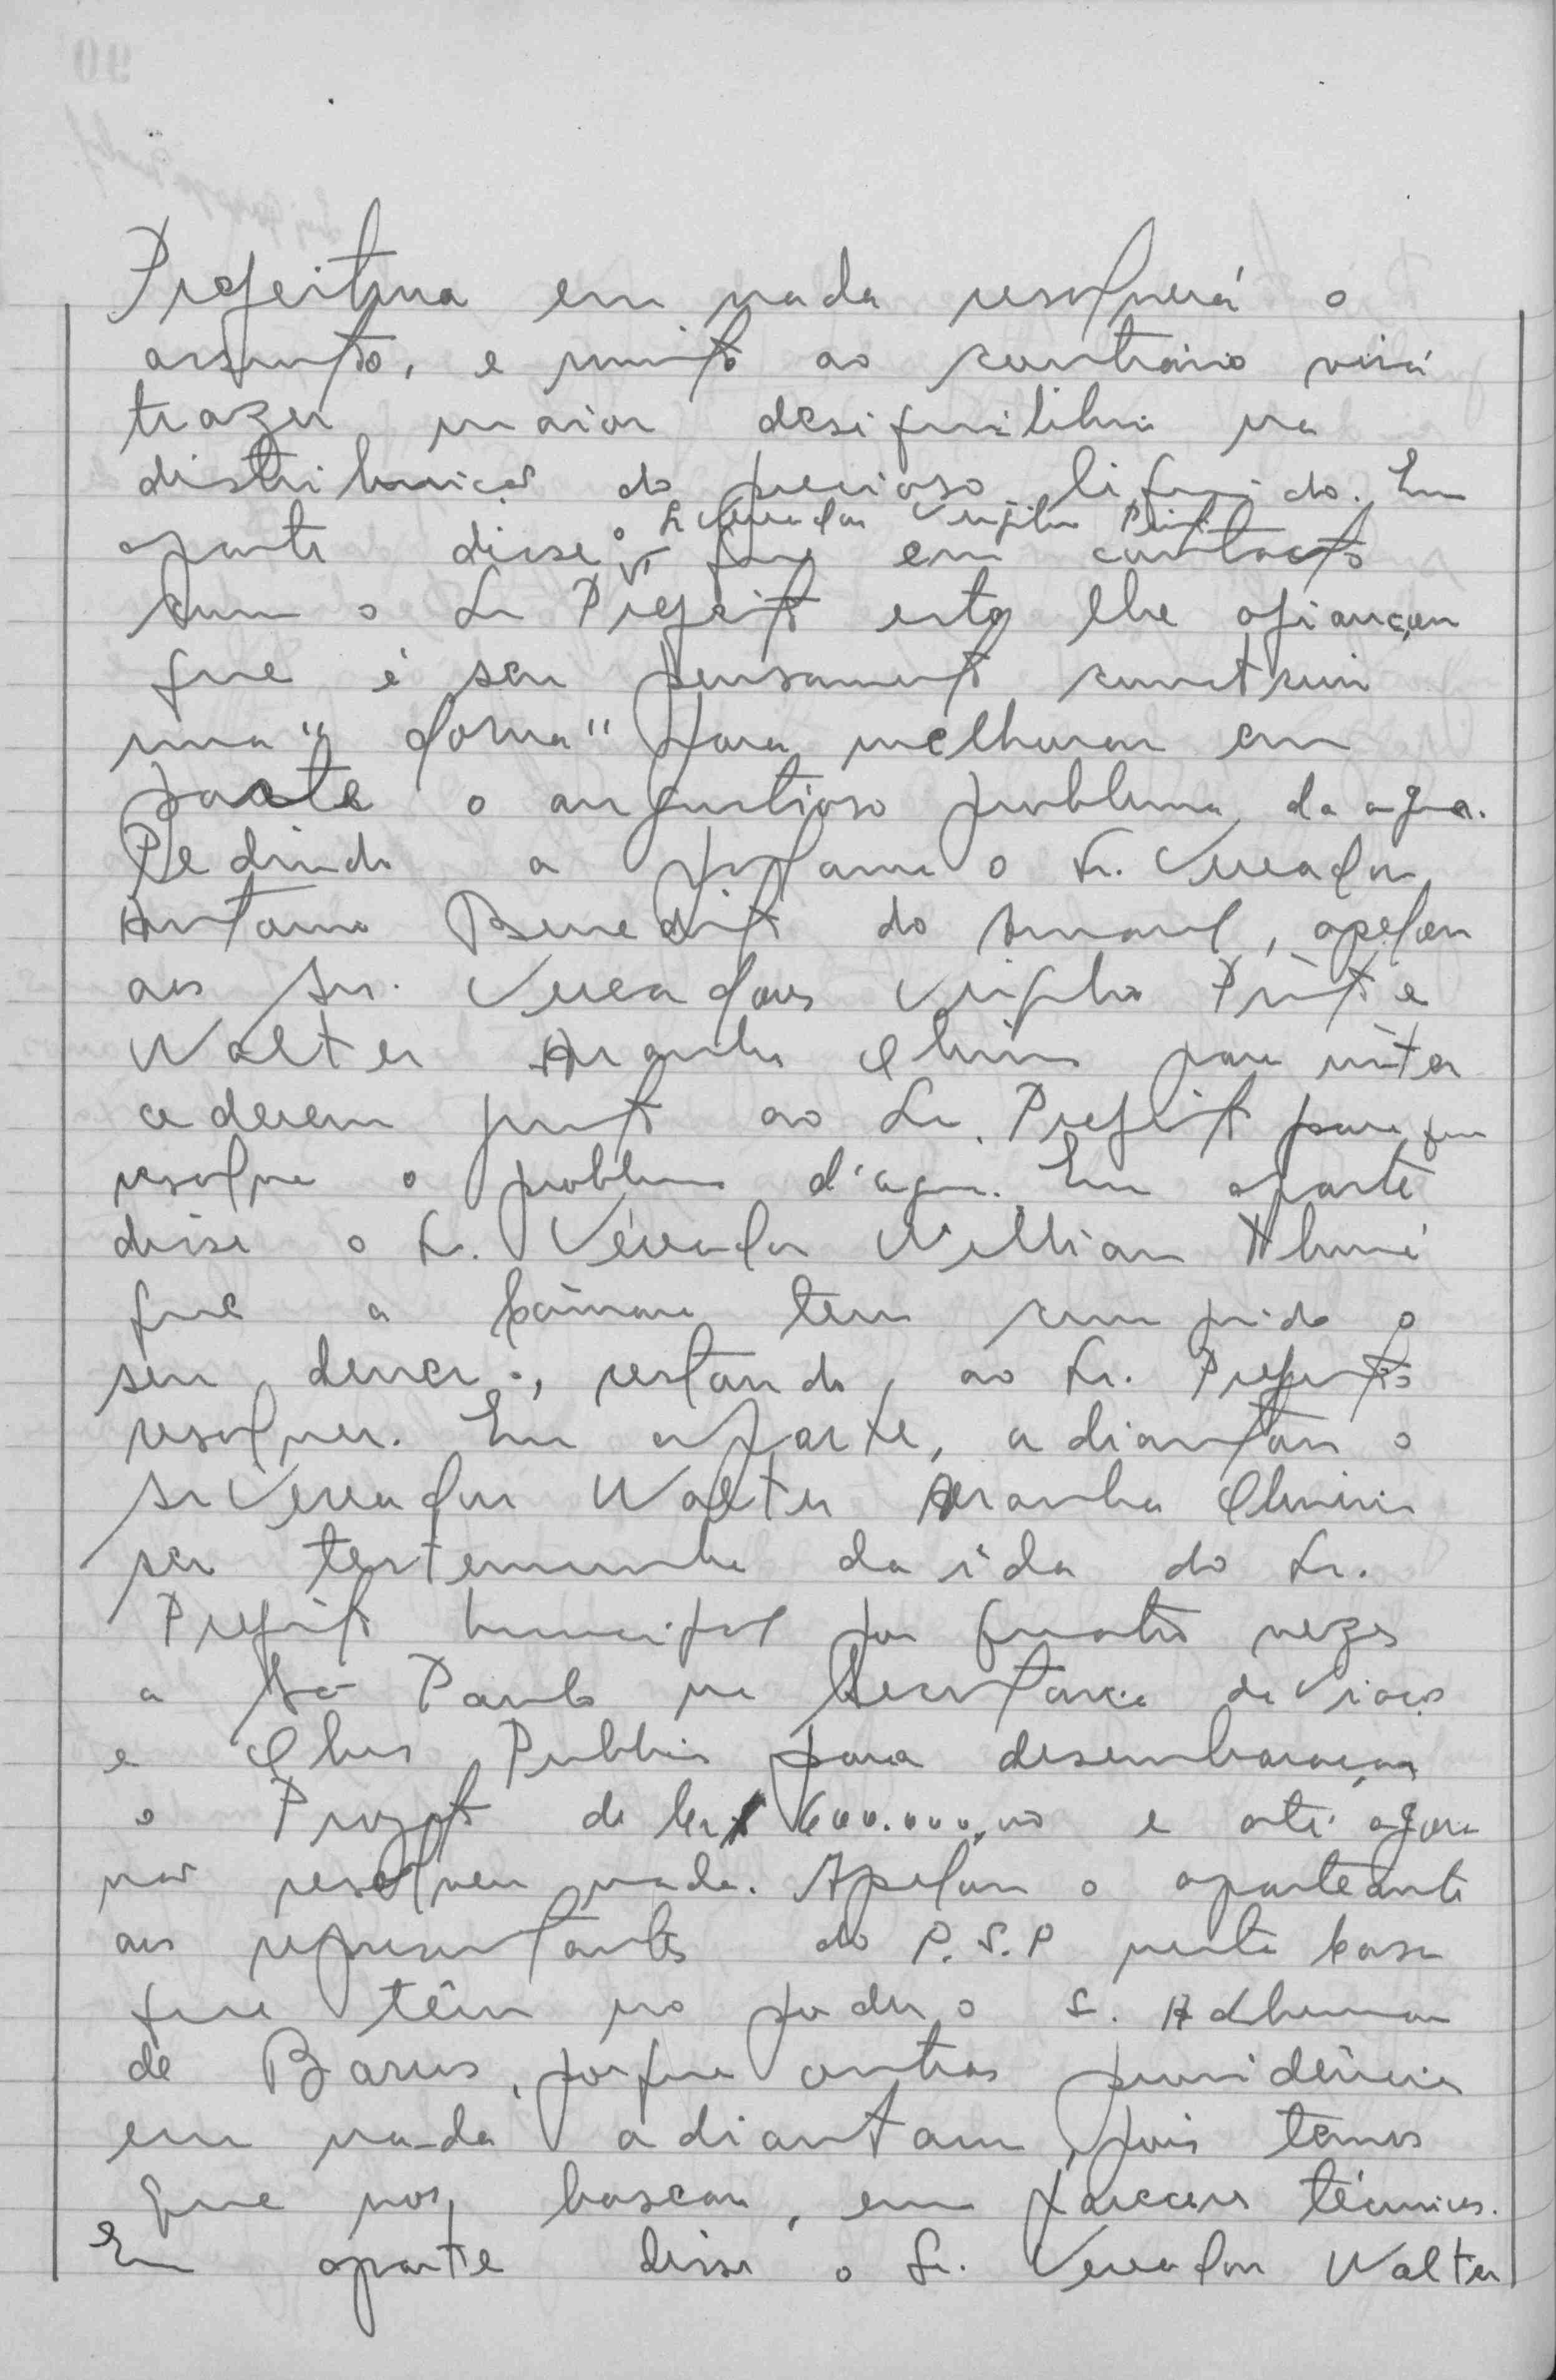 Prefeitura em nada resolverá o
assunto, e muito ao contrário virá
trazer maior desiquilibrio na
distribuição do precioso liquido. Em
o Sr Vereador Virgilio Pinto
aparte disse que em contacto
com o Sr Prefeito esta lhe afiançou
que é seu pensamento construir
uma " dorna" para melhorar em
parte o angustioso problema da agua.
Pedindo a palavra o Sr. Vereador
Antonio Benedito do Amaral, apelou
aos Srs. Vereadores Virgilio Pinto e
Walter Aranha para inter
cederem junto ao Sr. Prefeito para que
resolva o problema d'agua. Em aparte
disse o Sr. Vereador Willian
que a Câmara tem cumprido o
seu dever, restando, ao Sr. Prefeito
resolver. Em aparte, adiantou o
Sr Vereador Walter Aranha
ser testemunha da ida do Sr.
Prefeito Municipal por quatro vezes
a São Paulo na Secretaria de Viação
e Obras Publicas para desembaraçar
o Projeto de Cr$ 600.000,00 e até agora
não resolveu nada. Apelou o aparteante
aos representantes do P.S.P nesta Casa
que têm no poder o S. Adhemar
de Barros, porque outras providências
em nada adiantam, pois temos
que nos basear, em pareceres técnicos.
Em aparte disse o Sr. Vereador Walter